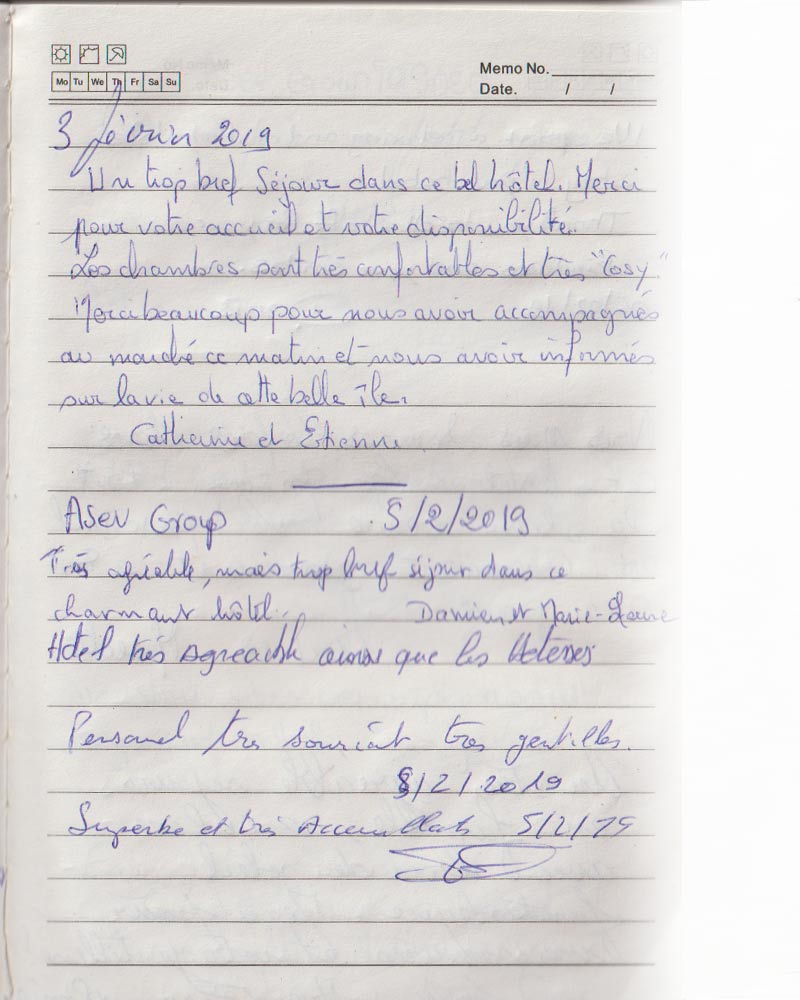 Memo No.
Mo Tu We Th Fr Sa Su
Date. / /
3 février 2019
Un trop bref Séjour dans ce bel hôtel. Merci
pour votre accueil et votre disponibilité.
Les chambres sont très confortables et très "Cosy".
Merci beaucoup pour nous avoir accompagnés
au marché ce matin et nous avoir informés
sur la vie de cette belle île.
Catherine et Etienne.
Aseu Group 5/2/2019
Très agréable, mais trop bref séjour dans ce
charmant hôtel. Damien et Marie-
Hotel très Agreable ainsi que les Hotesses
Personnel tres souriant tres gentilles.
5/2/2019
Superbe et très 5/2/19